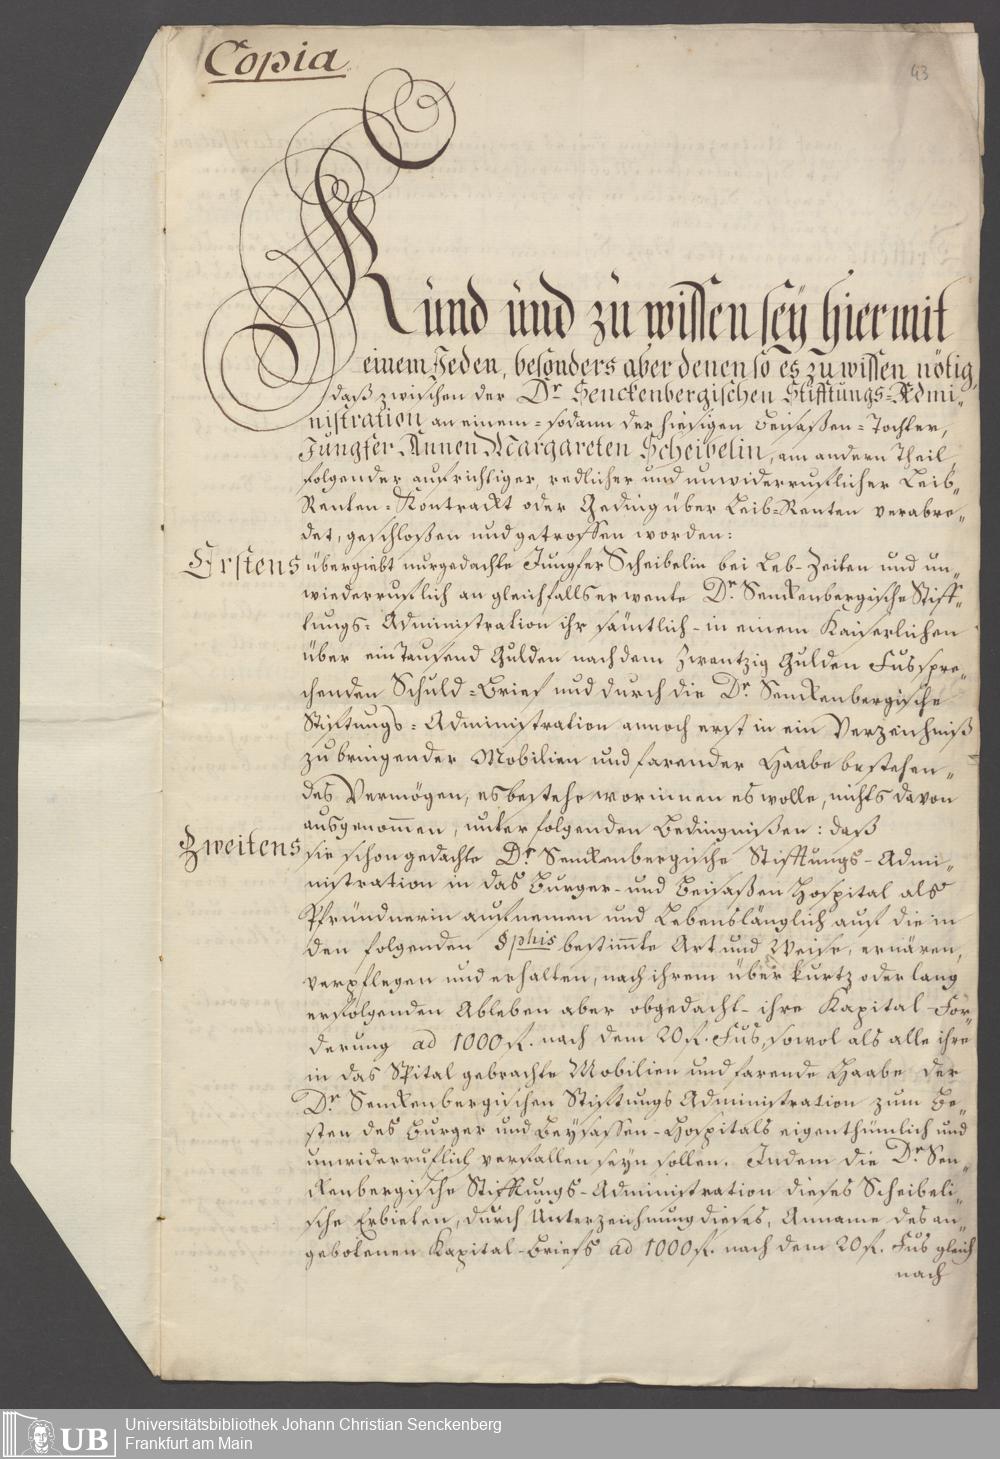 Copia
43
Kund und zu wissen sey hiermit
einem Jeden, besonders aber denen so es zu wissen nötig,
daß zwischen der Dr. Senckenbergischen Stifftungs-Admi-
nistration an einem- sodann der hiesigen Beisaßen-Tochter,
Jungfer Annen Margareten Scheibelin, am andern Theil
folgender aufrichtiger, redlicher und unwiderruflicher Leib-
Renten-Kontrackt oder Geding über Leib-Renten verabre-
det, geschloßen und getroffen worden:
Erstens übergiebt nurgedachte Jungfer Scheibelin bei Leb-Zeiten und un-
wiederruflich an gleichfalls erwente Dr. Senckenbergische Stiff-
tungs-Administration ihr sämtlich- in einem Kaiserlichen
über ein Tausend Gulden nach dem Zwantzig Gulden Fus spre-
chenden Schuld-Brief und durch die Dr. Senckenbergische
Stiftungs-Administration annoch erst in ein Verzeichniß
zu bringender Mobilien und farender Haabe bestehen-
des Vermögen, es bestehe worinnen es wolle, nichts davon
ausgenom̄en, unter folgenden Bedingnißen: daß
Zweitens sie schongedachte Dr. Senckenbergische Stifftungs-Admi-
nistration in das Burger- und Beisaßen Hospital als
Pfründnerin aufnemen und Lebenslänglich auf die in
den folgenden §phis bestim̄te Art und Weise, ernären,
verpflegen und erhalten, nach ihrem über kurtz oder lang
erfolgenden Ableben aber obgedacht- ihre Kapital-För-
derung ad 1000 f. nach dem 20 f. Fus, sowol als alle ihre
in das Spital gebrachte Mobilien und farende Haabe der
Dr. Senckenbergischen Stiftungs Administration zum Be-
sten des Burger und Beysassen-Hospitals eigenthümlich und
unwiderruflich verfallen seyn sollen. Indem die Dr. Sen-
ckenbergische Stifftungs-Administration dieses Scheibeli-
sche Erbieten, durch Unterzeichnung dieses, Anname des an-
gebotenen Kapital-Briefs ad 1000 f. nach dem 20 f. Fus gleich
nach
UB
Universitätsbibliothek Johann Christian Senckenberg
Frankfurt am Main